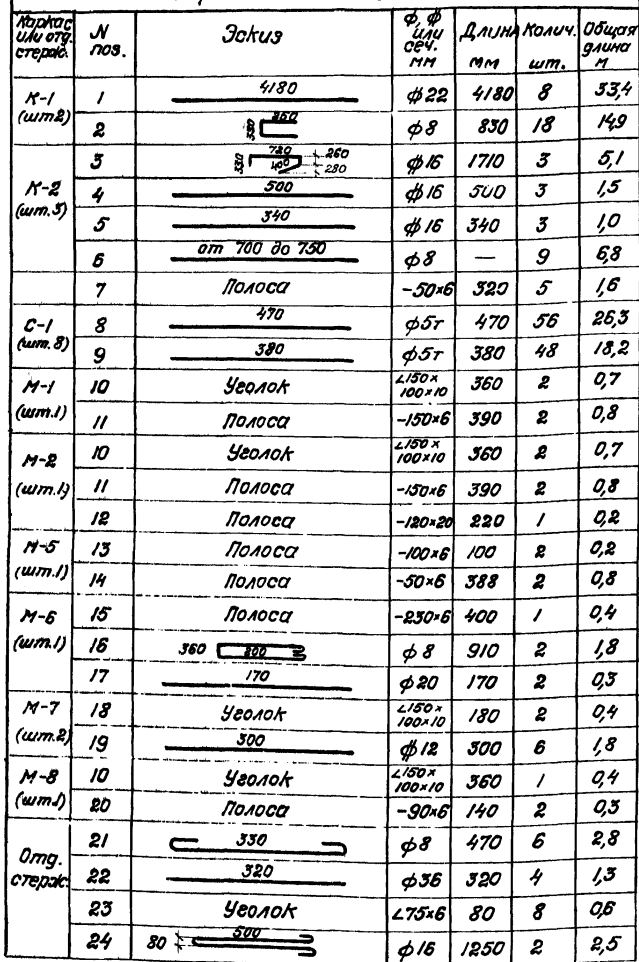 Каркас или отд. стерж. N поз. Эскиз ф, ф или сеч. мм Длина мм Колич. шт. Общая длина м
К-1 (шт2) 1 4180 ф22 4180 8 33,4
2 260 330 ф8 830 18 14,9
К-2 (шт.3) 3 330 720 400 260 280 ф16 1710 3 5,1
4 500 ф16 500 3 1,5
5 340 ф16 340 3 1,0
6 от 700 до 750 ф8 — 9 6,8
7 Полоса -50×6 320 5 1,6
С-1 (шт.8) 8 470 ф5т 470 56 26,3
9 380 ф5т 380 48 18,2
М-1 (шт.1) 10 Уголок ∠150×100×10 360 2 0,7
11 Полоса -150×6 390 2 0,8
М-2 (шт.1) 10 Уголок ∠150×100×10 360 2 0,7
11 Полоса -150×6 390 2 0,8
12 Полоса -120×20 220 1 0,2
М-5 (шт.1) 13 Полоса -100×6 100 2 0,2
14 Полоса -50×6 388 2 0,8
М-6 (шт.1) 15 Полоса -230×6 400 1 0,4
16 360 200 ф8 910 2 1,8
17 170 ф20 170 2 0,3
М-7 (шт.2) 18 Уголок ∠150×100×10 180 2 0,4
19 300 ф12 300 6 1,8
М-8 (шт.1) 10 Уголок ∠150×100×10 360 1 0,4
20 Полоса -90×6 140 2 0,3
Отд. стерж. 21 330 ф8 470 6 2,8
22 320 ф36 320 4 1,3
23 Уголок ∠75×6 80 8 0,6
24 80 500 ф16 1250 2 2,5